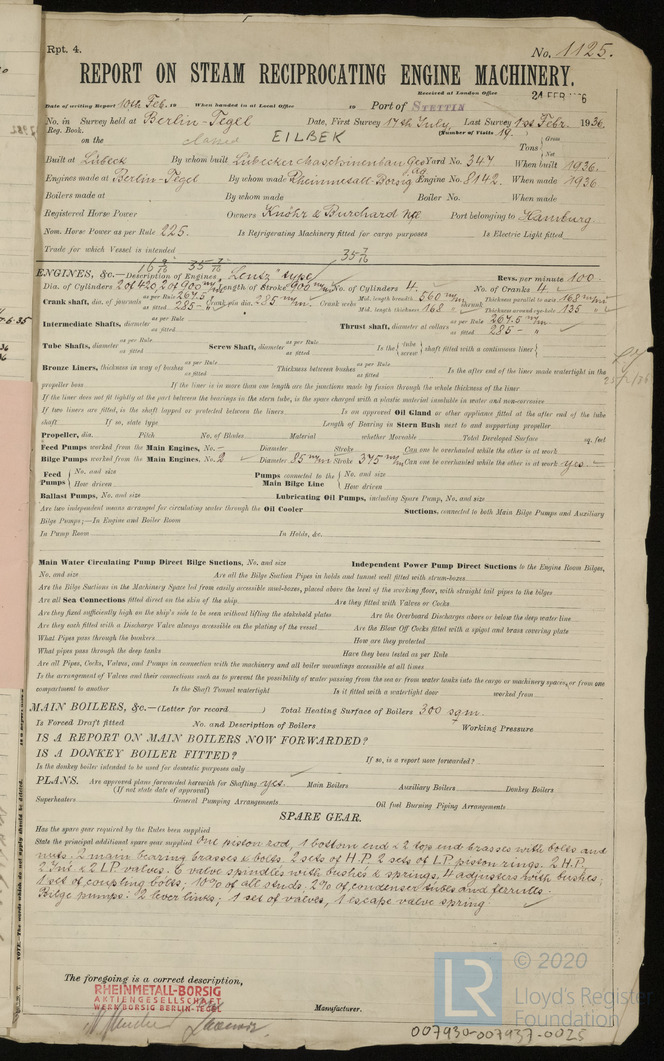 Rpt. 4.
No. 1125.
REPORT ON STEAM RECIPROCATING ENGINE MACHINERY.
Received at London Office
Date of writing Report 10th Feb. 19 When handed in at Local Office 19 Port of STETTIN
No. in Survey held at Berlin-Tegel Date, First Survey 17th July, Last Survey 1st Febr. 1936.
Reg. Book. (Number of Visits 19.)
on the EILBEK Tons { Gross Net
Built at Lübeck By whom built Yard No. 347 When built 1936.
Engines made at Berlin-Tegel By whom made Rheinmetall-Borsig A.G. Engine No. 8142. When made 1936.
Boilers made at By whom made Boiler No. When made
Registered Horse Power Owners Knöhr & Burchard Nfl. Port belonging to Hamburg.
Nom. Horse Power as per Rule 225. Is Refrigerating Machinery fitted for cargo purposes Is Electric Light fitted
Trade for which Vessel is intended
16 9/16 35 7/16 35 7/16
ENGINES, &c.—Description of Engines "Lentz" type Revs. per minute 100
Dia. of Cylinders 2 of 420, 2 of 900 m/m Length of Stroke 900 m/m No. of Cylinders 4. No. of Cranks 4
Crank shaft, dia. of journals as per Rule 267.5 as fitted 285 Crank pin dia. 285 m/m. Crank webs Mid. length breadth 560 m/m Mid. length thickness 168 shrunk Thickness parallel to axis 168 m/m Thickness around eye-hole 135
Intermediate Shafts, diameter as per Rule as fitted Thrust shaft, diameter at collars as per Rule 267.5 m/m as fitted 285
Tube Shafts, diameter as per Rule as fitted Screw Shaft, diameter as per Rule as fitted Is the { tube screw } shaft fitted with a continuous liner {
Bronze Liners, thickness in way of bushes as per Rule as fitted Thickness between bushes as per Rule as fitted Is the after end of the liner made watertight in the
propeller boss If the liner is in more than one length are the junctions made by fusion through the whole thickness of the liner
If the liner does not fit tightly at the part between the bearings in the stern tube, is the space charged with a plastic material insoluble in water and non-corrosive
If two liners are fitted, is the shaft lapped or protected between the liners Is an approved Oil Gland or other appliance fitted at the after end of the tube
shaft If so, state type Length of Bearing in Stern Bush next to and supporting propeller
Propeller, dia. Pitch No. of Blades Material whether Moveable Total Developed Surface sq. feet
Feed Pumps worked from the Main Engines, No. - Diameter Stroke Can one be overhauled while the other is at work
Bilge Pumps worked from the Main Engines, No. 2 Diameter 85 m/m Stroke 375 m/m Can one be overhauled while the other is at work yes.
Feed Pumps { No. and size How driven Pumps connected to the Main Bilge Line { No. and size How driven
Ballast Pumps, No. and size Lubricating Oil Pumps, including Spare Pump, No. and size
Are two independent means arranged for circulating water through the Oil Cooler Suctions, connected to both Main Bilge Pumps and Auxiliary
Bilge Pumps;—In Engine and Boiler Room
In Pump Room In Holds, &c.
Main Water Circulating Pump Direct Bilge Suctions, No. and size Independent Power Pump Direct Suctions to the Engine Room Bilges,
No. and size Are all the Bilge Suction Pipes in holds and tunnel well fitted with strum-boxes
Are the Bilge Suctions in the Machinery Space led from easily accessible mud-boxes, placed above the level of the working floor, with straight tail pipes to the bilges
Are all Sea Connections fitted direct on the skin of the ship Are they fitted with Valves or Cocks
Are they fixed sufficiently high on the ship's side to be seen without lifting the stokehold plates Are the Overboard Discharges above or below the deep water line
Are they each fitted with a Discharge Valve always accessible on the plating of the vessel Are the Blow Off Cocks fitted with a spigot and brass covering plate
What Pipes pass through the bunkers How are they protected
What pipes pass through the deep tanks Have they been tested as per Rule
Are all Pipes, Cocks, Valves, and Pumps in connection with the machinery and all boiler mountings accessible at all times
Is the arrangement of Valves and their connections such as to prevent the possibility of water passing from the sea or from water tanks into the cargo or machinery spaces, or from one
compartment to another Is the Shaft Tunnel watertight Is it fitted with a watertight door worked from
MAIN BOILERS, &c.—(Letter for record ) Total Heating Surface of Boilers 300 sqm.
Is Forced Draft fitted No. and Description of Boilers Working Pressure
IS A REPORT ON MAIN BOILERS NOW FORWARDED?
IS A DONKEY BOILER FITTED? If so, is a report now forwarded?
Is the donkey boiler intended to be used for domestic purposes only
PLANS. Are approved plans forwarded herewith for Shafting yes. Main Boilers Auxiliary Boilers Donkey Boilers
(If not state date of approval)
Superheaters General Pumping Arrangements Oil fuel Burning Piping Arrangements
SPARE GEAR.
Has the spare gear required by the Rules been supplied
State the principal additional spare gear supplied One piston rod, 1 bottom end & 2 top end brasses with bolts and
nuts. 2 main bearing brasses & bolts. 2 sets of H.P. 2 sets of L.P. piston rings. 2 H.P.,
2 Int. & 2 L.P. valves. 6 valve spindles with bushes & springs, 4 adjusters with bushes;
1 set of coupling bolts; 10% of all studs, 2% of condenser tubes and ferrules.
Bilge pumps: 2 lever links; 1 set of valves, 1 escape valve spring
The foregoing is a correct description,
RHEINMETALL-BORSIG
AKTIENGESELLSCHAFT
WERK BORSIG BERLIN-TEGEL
Manufacturer.
© 2020
LR
Lloyd's Register
Foundation
007930-007937-0025